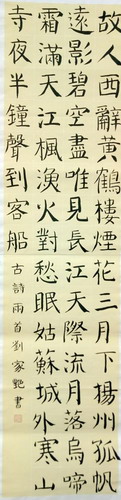 故人西辭黃鶴樓煙花三月下揚州孤帆
遠影碧空盡唯見長江天際流月落烏啼
霜滿天江楓漁火對愁眠姑蘇城外寒山
寺夜半鐘聲到客船 古詩兩首劉家艷書